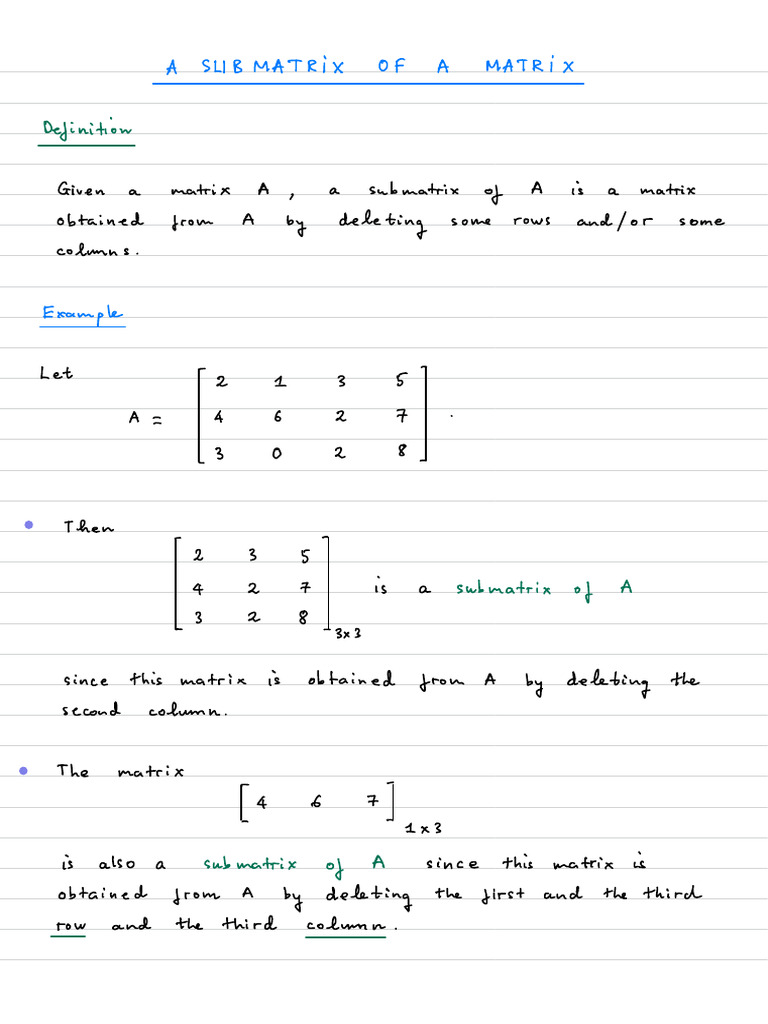 A SUBMATRIX OF A MATRIX
Definition
Given a matrix A, a submatrix of A is a matrix
obtained from A by deleting some rows and/or some
columns.
Example
Let
2 1 3 5
A = 4 6 2 7 .
3 0 2 8
• Then
2 3 5
4 2 7 is a submatrix of A
3 2 8
3x3
since this matrix is obtained from A by deleting the
second column.
• The matrix
[ 4 6 7 ]
1x3
is also a submatrix of A since this matrix is
obtained from A by deleting the first and the third
row and the third column.